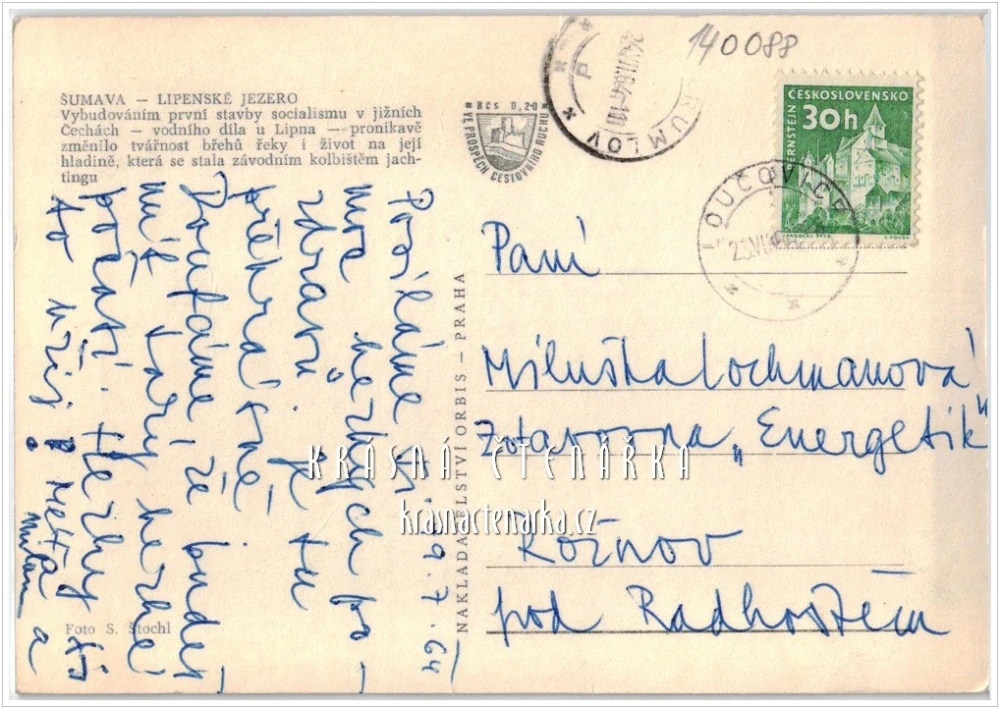 140088
ŠUMAVA — LIPENSKÉ JEZERO
Vybudováním první stavby socialismu v jižních
Čechách — vodního díla u Lipna — pronikavě
změnilo tvářnost břehů řeky i život na její
hladině, která se stala závodním kolbištěm jach-
tingu
Kčs 0,20
VE PROSPĚCH CESTOVNÍHO RUCHU
RUMLOV
ČESKOSLOVENSKO
30h
PERNŠTEJN
LOUČOVICE
Posíláme ti
moc hezkých po-
zdravů. Je tu
překrásně.
Doufáme, že budeš
mít taky hezké
počasí. Hezky si
to užij
Meta a
Milan
19.7.64
Paní
Miluška Lochmanová
Zotavovna „Energetik"
Rožnov
pod Radhoštěm
NAKLADATELSTVÍ ORBIS – PRAHA
Foto S. Štochl
KRÁSNÁ ČTENÁŘKA
krasnactenarka.cz